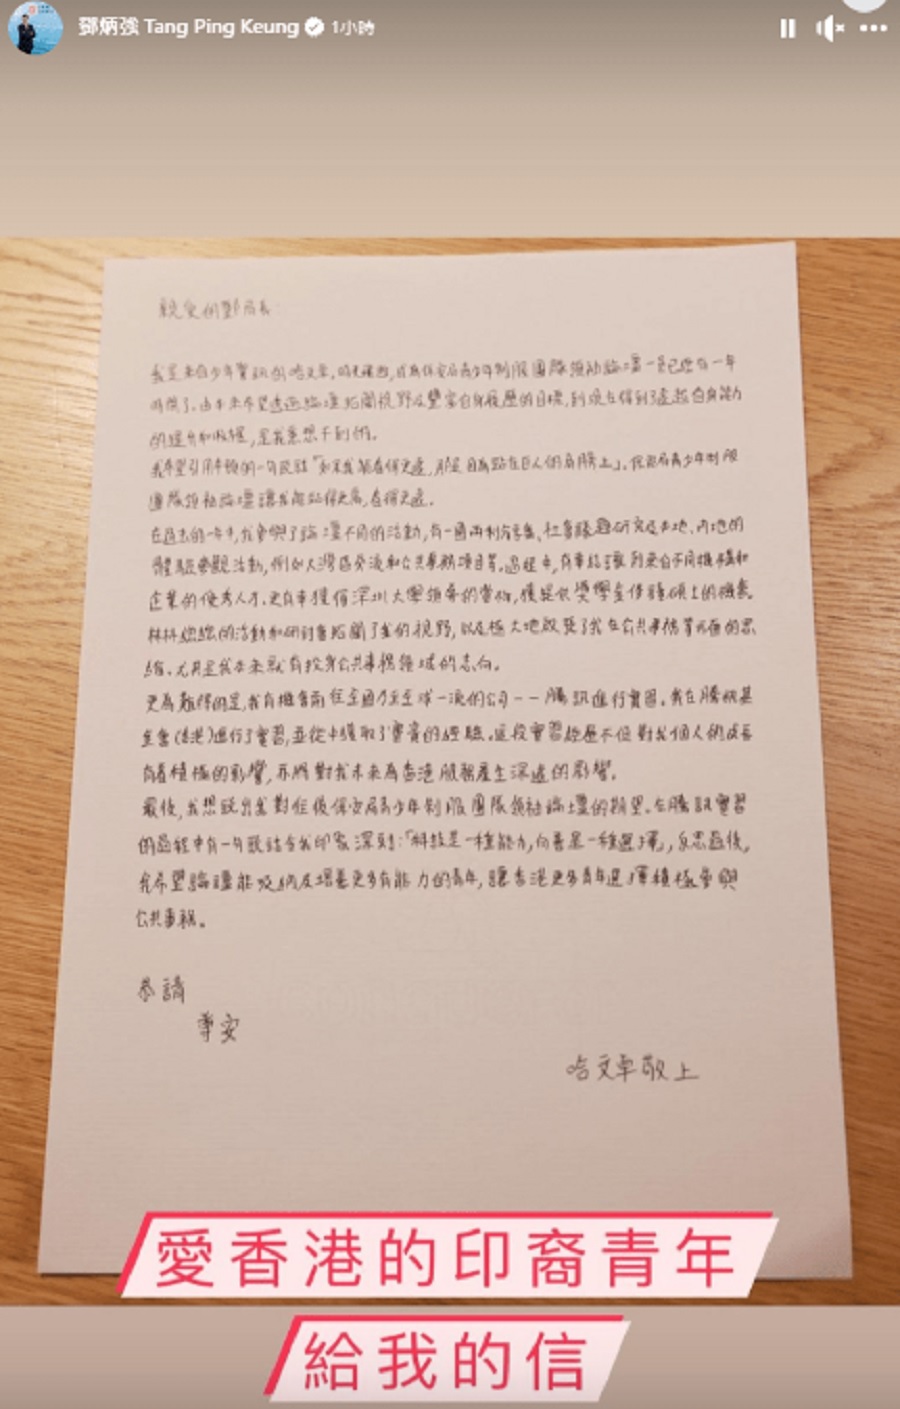 鄧炳強 Tang Ping Keung 1小時
親愛的鄧局長：
我是來自少年警訊的哈文卓，時光荏苒，成為保安局青少年制服團隊領袖論壇一員已經有一年
時間了。由本來希望透過論壇拓闊視野及豐富自身履歷的目標，到現在得到遠超自身能力
的提升和收穫，是我意想不到的。
我希望引用牛頓的一句說話「如果我能看得更遠，那是因為站在巨人們的肩膀上」。保安局青少年制服
團隊領袖論壇讓我能站得更高，看得更遠。
在過去的一年中，我參與了論壇不同的活動，有一國兩制的講座、社會議題研究及本地、內地的
體驗參觀活動，例如大灣區交流和公共事務項目等。過程中，有幸結識到來自不同機構和
企業的優秀人才。更有幸獲得深圳大學領導的賞識，獲提供獎學金修讀碩士的機會。
林林總總的活動和研討會拓闊了我的視野，以及極大地啟發了我在公共事務等方面的思
維。尤其是我本來就有投身公共事務領域的志向。
更為難得的是，我有機會前往全國乃至全球一流的公司——騰訊進行實習。我在騰訊基
金會(香港)進行了實習，並從中獲取了寶貴的經驗。這段實習經歷不但對我個人的成長
有着積極的影響，亦將對我未來為香港服務產生深遠的影響。
最後，我想說出我對往後保安局青少年制服團隊領袖論壇的期望。在騰訊實習
的過程中有一句說話令我印象深刻：「科技是一種能力，向善是一種選擇」，反思過後，
我希望論壇能吸納及培養更多有能力的青年，讓香港更多青年選擇積極參與
公共事務。
恭請
尊安
哈文卓敬上
愛香港的印裔青年
給我的信